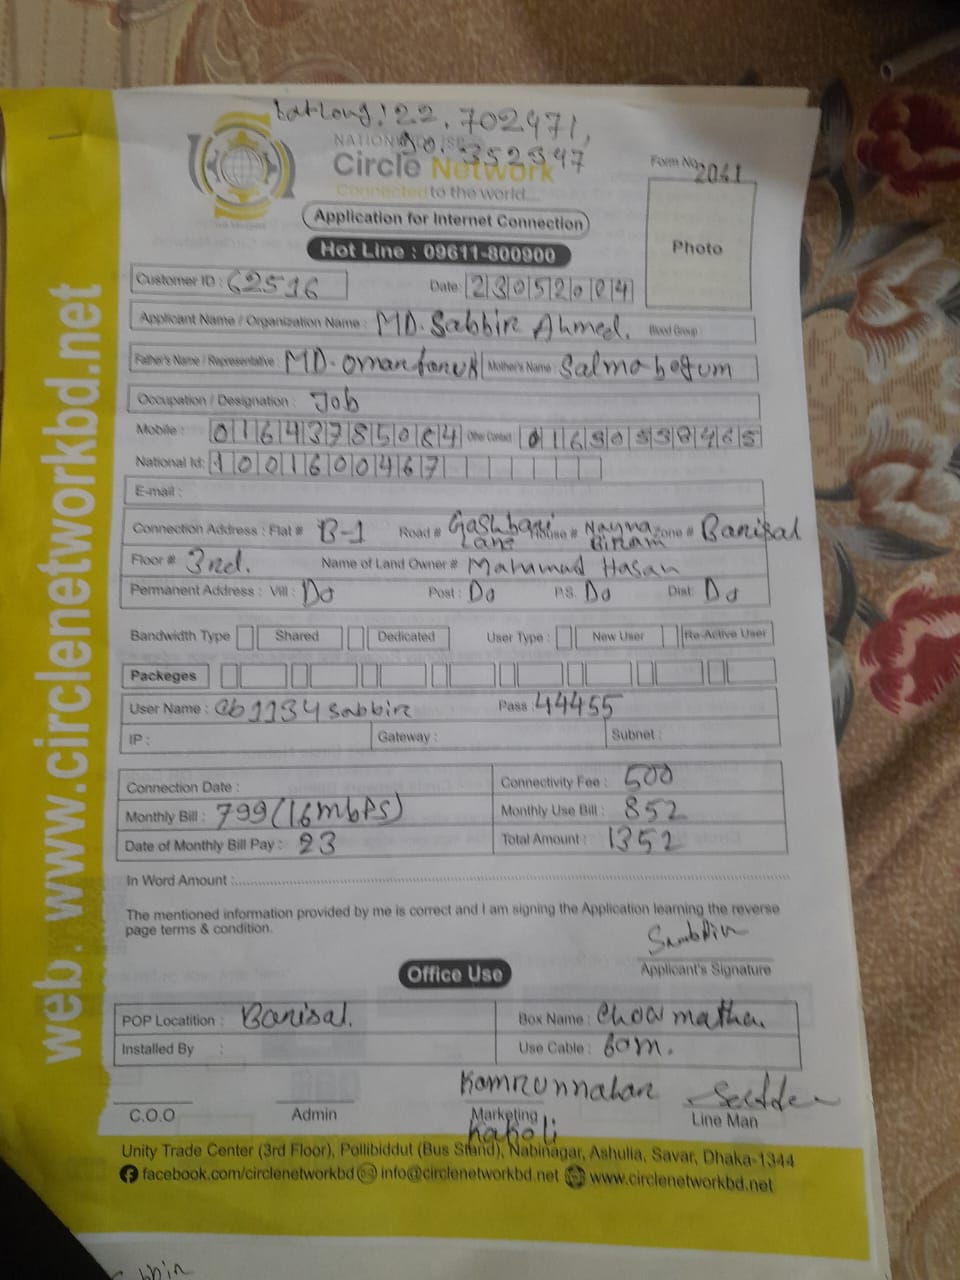 Lat Long: 22.702471,
90.352347
NATIONWIDE ISP
Circle Network
Connected to the world...
Form No. 2041
Application for Internet Connection
Hot Line : 09611-800900
Photo
Customer ID : 62516
Date: 23052004
Applicant Name / Organization Name : MD. Sabbir Ahmed. Blood Group :
Father's Name / Representative : MD. Omar Mother's Name : Salma begum
Occupation / Designation : Job
Mobile : Other Contact
National Id: 1001600467
E-mail :
Connection Address : Flat # B-1 Road # Lane House # Zone # Barisal
Floor # 3rd. Name of Land Owner # Mahamud Hasan
Permanent Address : Vill : Do Post : Do P.S. Do Dist: Do
Bandwidth Type Shared Dedicated User Type : New User Re-Active User
Packeges
User Name : cb1134sabbir Pass : 44455
IP : Gateway : Subnet :
Connection Date : Connectivity Fee : 500
Monthly Bill : 799 (16mbps) Monthly Use Bill : 852
Date of Monthly Bill Pay : 23 Total Amount : 1352
In Word Amount :
The mentioned information provided by me is correct and I am signing the Application learning the reverse
page terms & condition.
Applicant's Signature
Office Use
POP Locatition : Barisal. Box Name : Chow matha.
Installed By : Use Cable : 60m.
Kamrunnahar
C.O.O Admin Marketing Line Man
Kakoli
Unity Trade Center (3rd Floor), Pollibiddut (Bus Stand), Nabinagar, Ashulia, Savar, Dhaka-1344
facebook.com/circlenetworkbd info@circlenetworkbd.net www.circlenetworkbd.net
web : www.circlenetworkbd.net